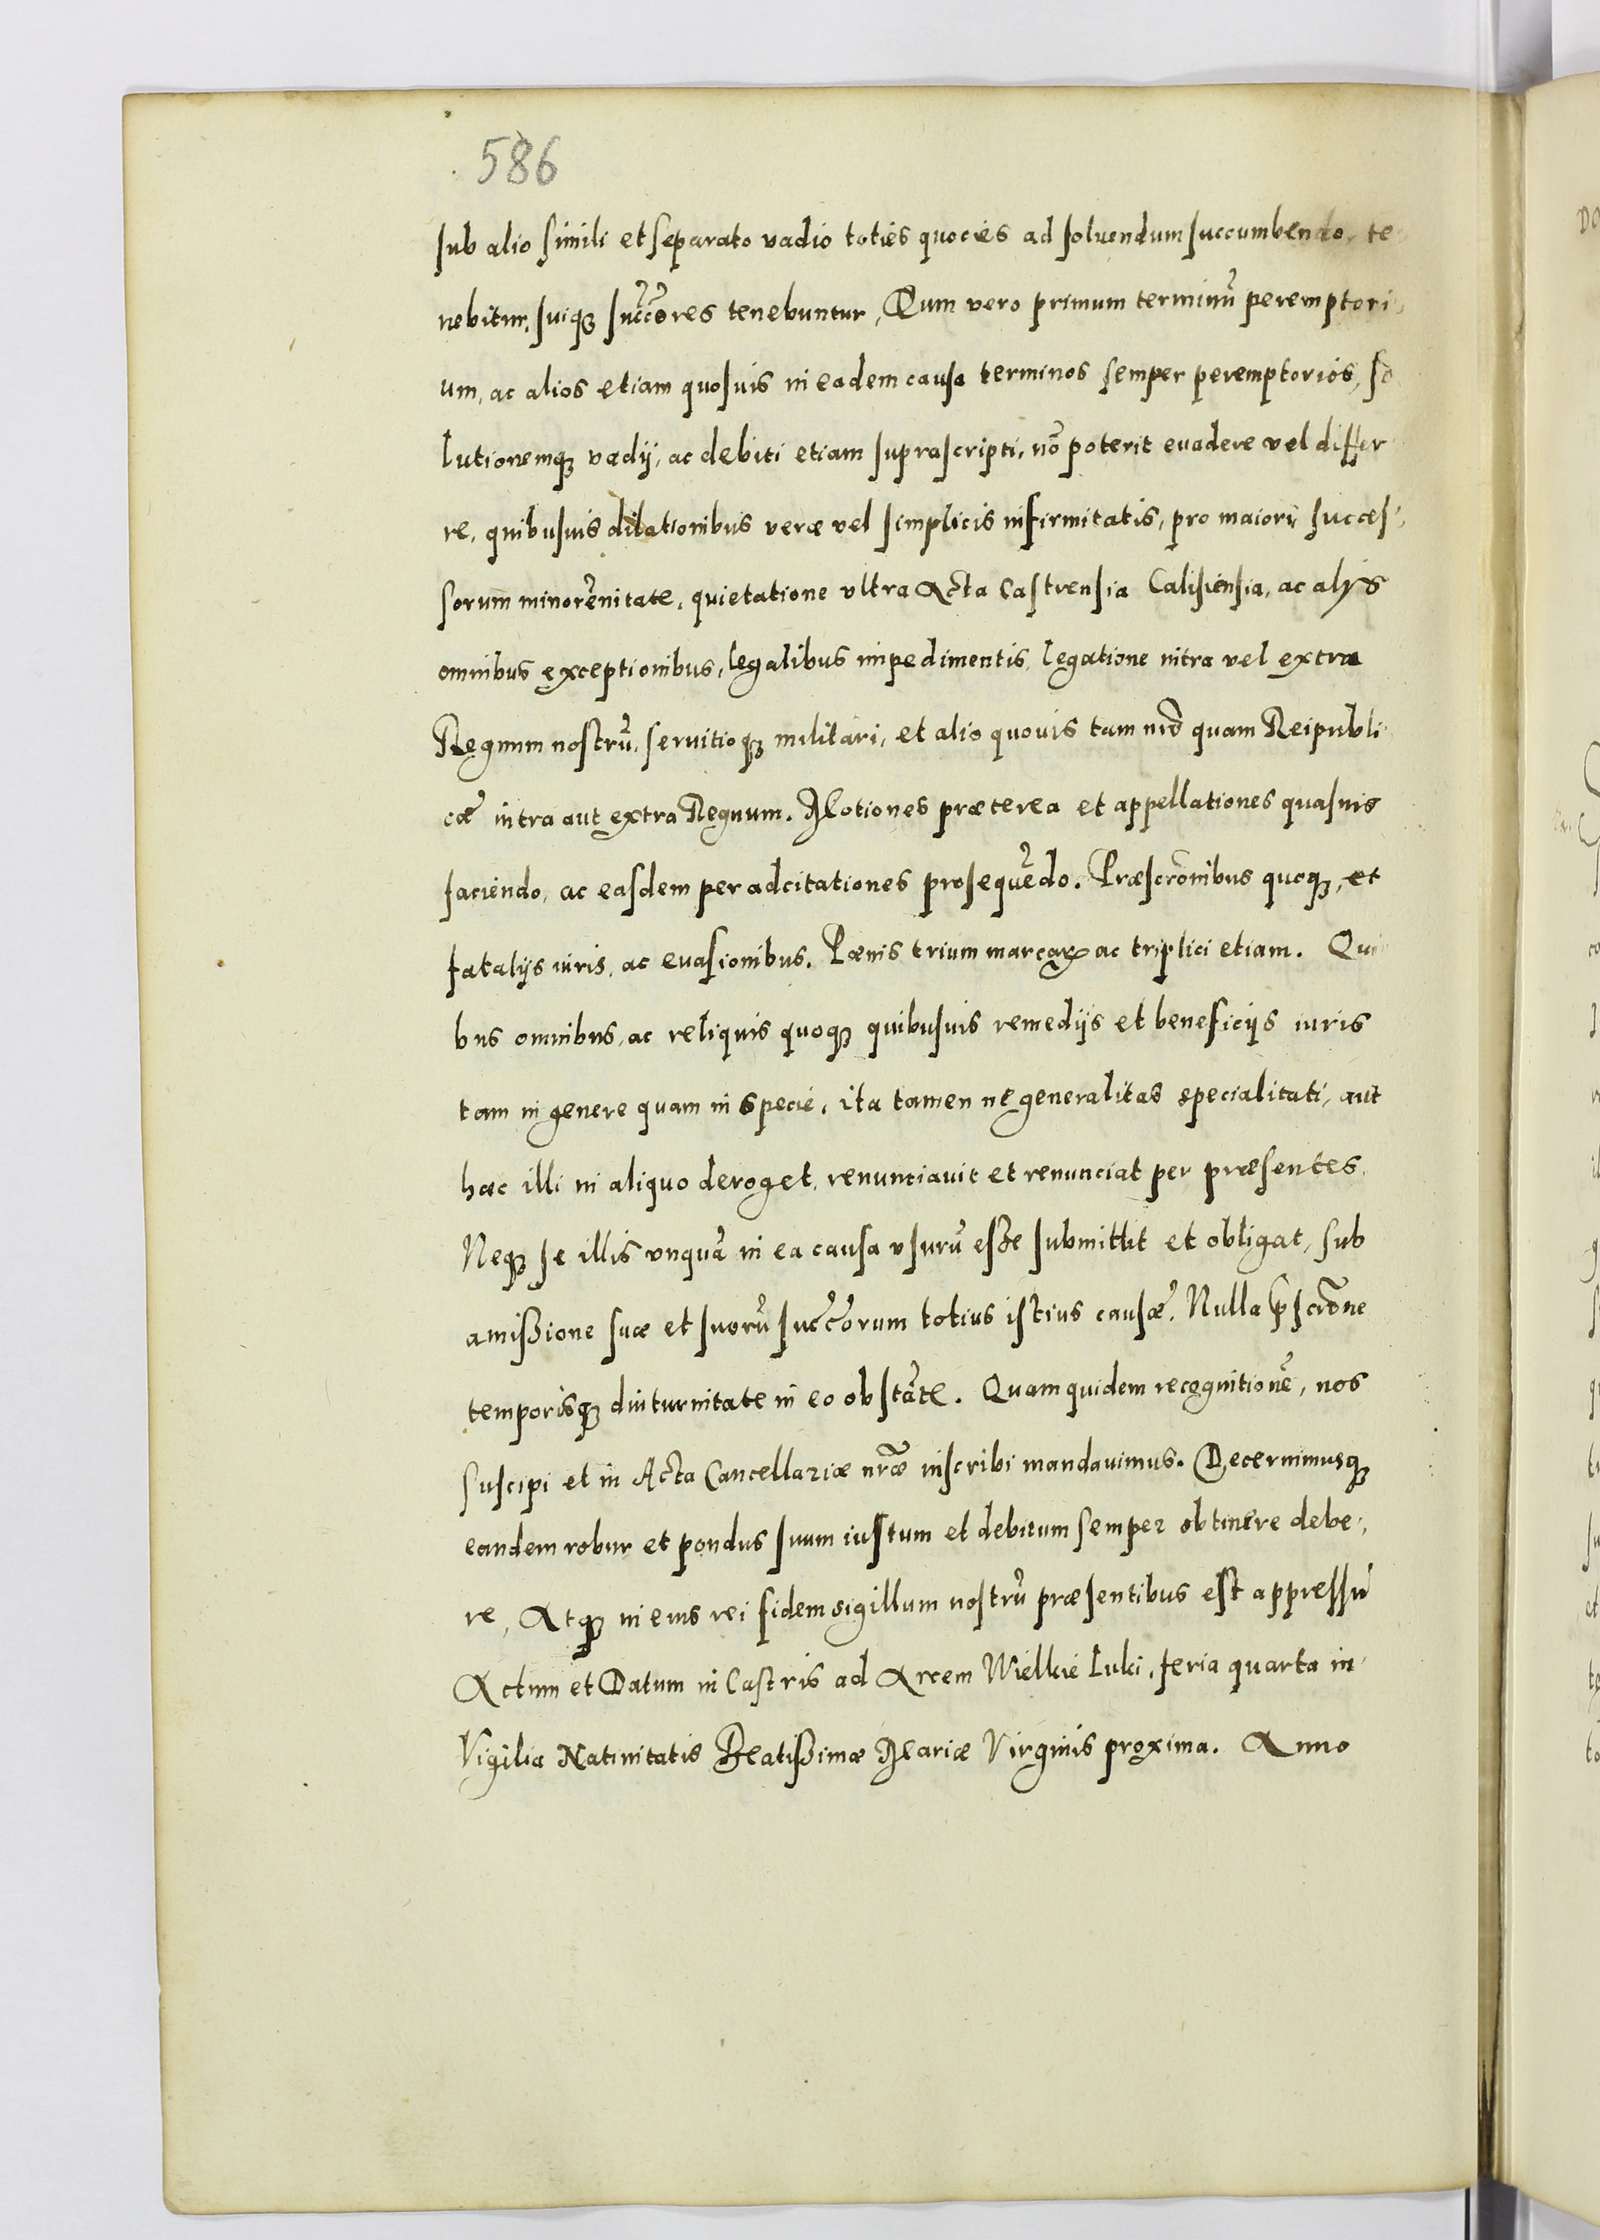 586
sub alio simili et separato vadio toties quocies ad soluendum succumbendo, te
nebitur, suiq3 succ͠ores tenebuntur, Quem vero primum terminũ peremptori,
um, ac alios etiam quosuis in eadem causa terminos semper peremptorios, so
lutionemq3 vadij, ac debiti etiam suprascripti, nõ poterit euadere vel differ
re, quibusuis dilationibus veræ vel simplicis infirmitatis, pro maiori, succes,
sorum minorẽnitate, quietatione vltra Acta Castrensia Calisiensia, ac alijs
omnibus exceptionibus, legalibus impedimentis, legatione intra vel extra
Regnum nostrũ, seruitioq3 militari, et alio quouis tam nr̃o quam Reipubli
cæ intra aut extra Regnum. Motiones præterea et appellationes quasuis
faciendo, ac easdem per adcitationes prosequẽdo. Præscrõnibus quoq3, et
fatalijs iuris, ac euasionibus. Pænis trium marcarꝝ ac triplici etiam. Qui
bus omnibus, ac reliquis quoq3 quibusuis remedijs et beneficijs iuris
tam in genere quam in specie, ita tamen ne generalitas specialitati, aut
hæc illi in aliquo deroget, renunciauit et renunciat per præsentes.
Neq3 se illis vnquã in ea causa vsurũ esse submittit et obligat, sub
amißione suæ et suorũ succ͠orum totius istius causæ. Nulla p̃scrõne
temporisq3 diuturnitate in eo obstãte. Quam quidem recognitionẽ, nos
suscipi et in Acta Cancellariæ nr̃æ inscribi mandauimus. Decernimusq3
eandem robur et pondus suum iustum et debitum semper obtinere debe,
re, Atq3 in eius rei fidem sigillum nostrũ præsentibus est appressũ
Actum et Datum in Castris ad Arcem Wielkie Luki, feria quarta in
Vigilia Natiuitatis Beatißimæ Mariæ Virginis proxima. Anno